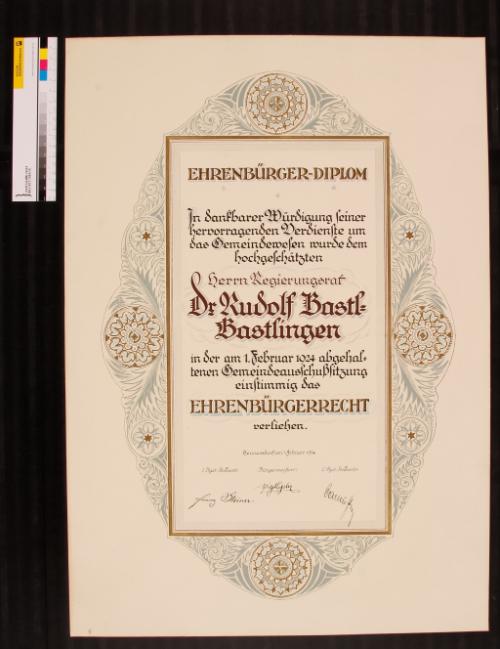 EHRENBÜRGER-DIPLOM
In dankbarer Würdigung seiner
hervorragenden Verdienste um
das Gemeindewesen wurde dem
hochgeschätzten
Herrn Regierungsrat
Dr Rudolf Bastl-
Bastlingen
in der am 1. Februar 1924 abgehal-
tenen Gemeindeausschußsitzung
einstimmig das
EHRENBÜRGERRECHT
verliehen.
Februar
Bürgermeister:
Franz